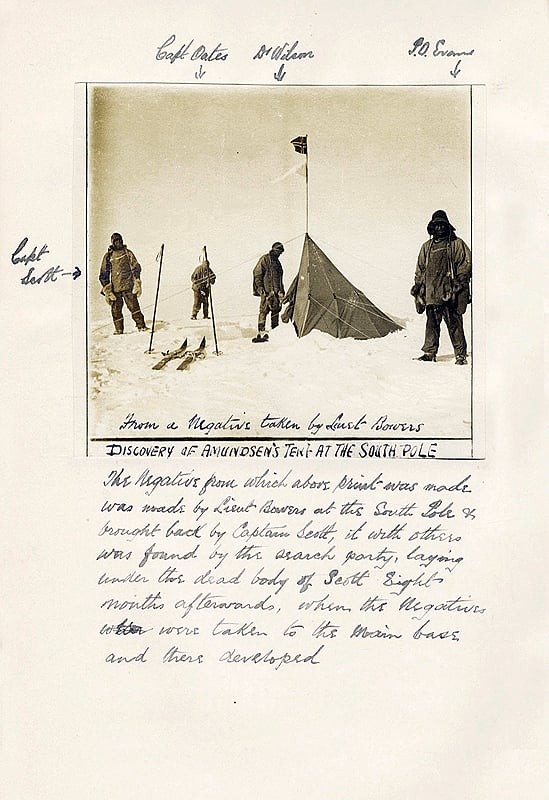 Capt Oates Dr Wilson P.O. Evans
Capt
Scott
From a Negative taken by Lieut Bowers
DISCOVERY OF AMUNDSEN'S TENT AT THE SOUTH POLE
The Negative from which above print was made
was made by Lieut Bowers at the South Pole &
brought back by Captain Scott, it with others
was found by the search party, laying
under the dead body of Scott Eight
months afterwards, when the Negatives
were taken to the main base
and there developed